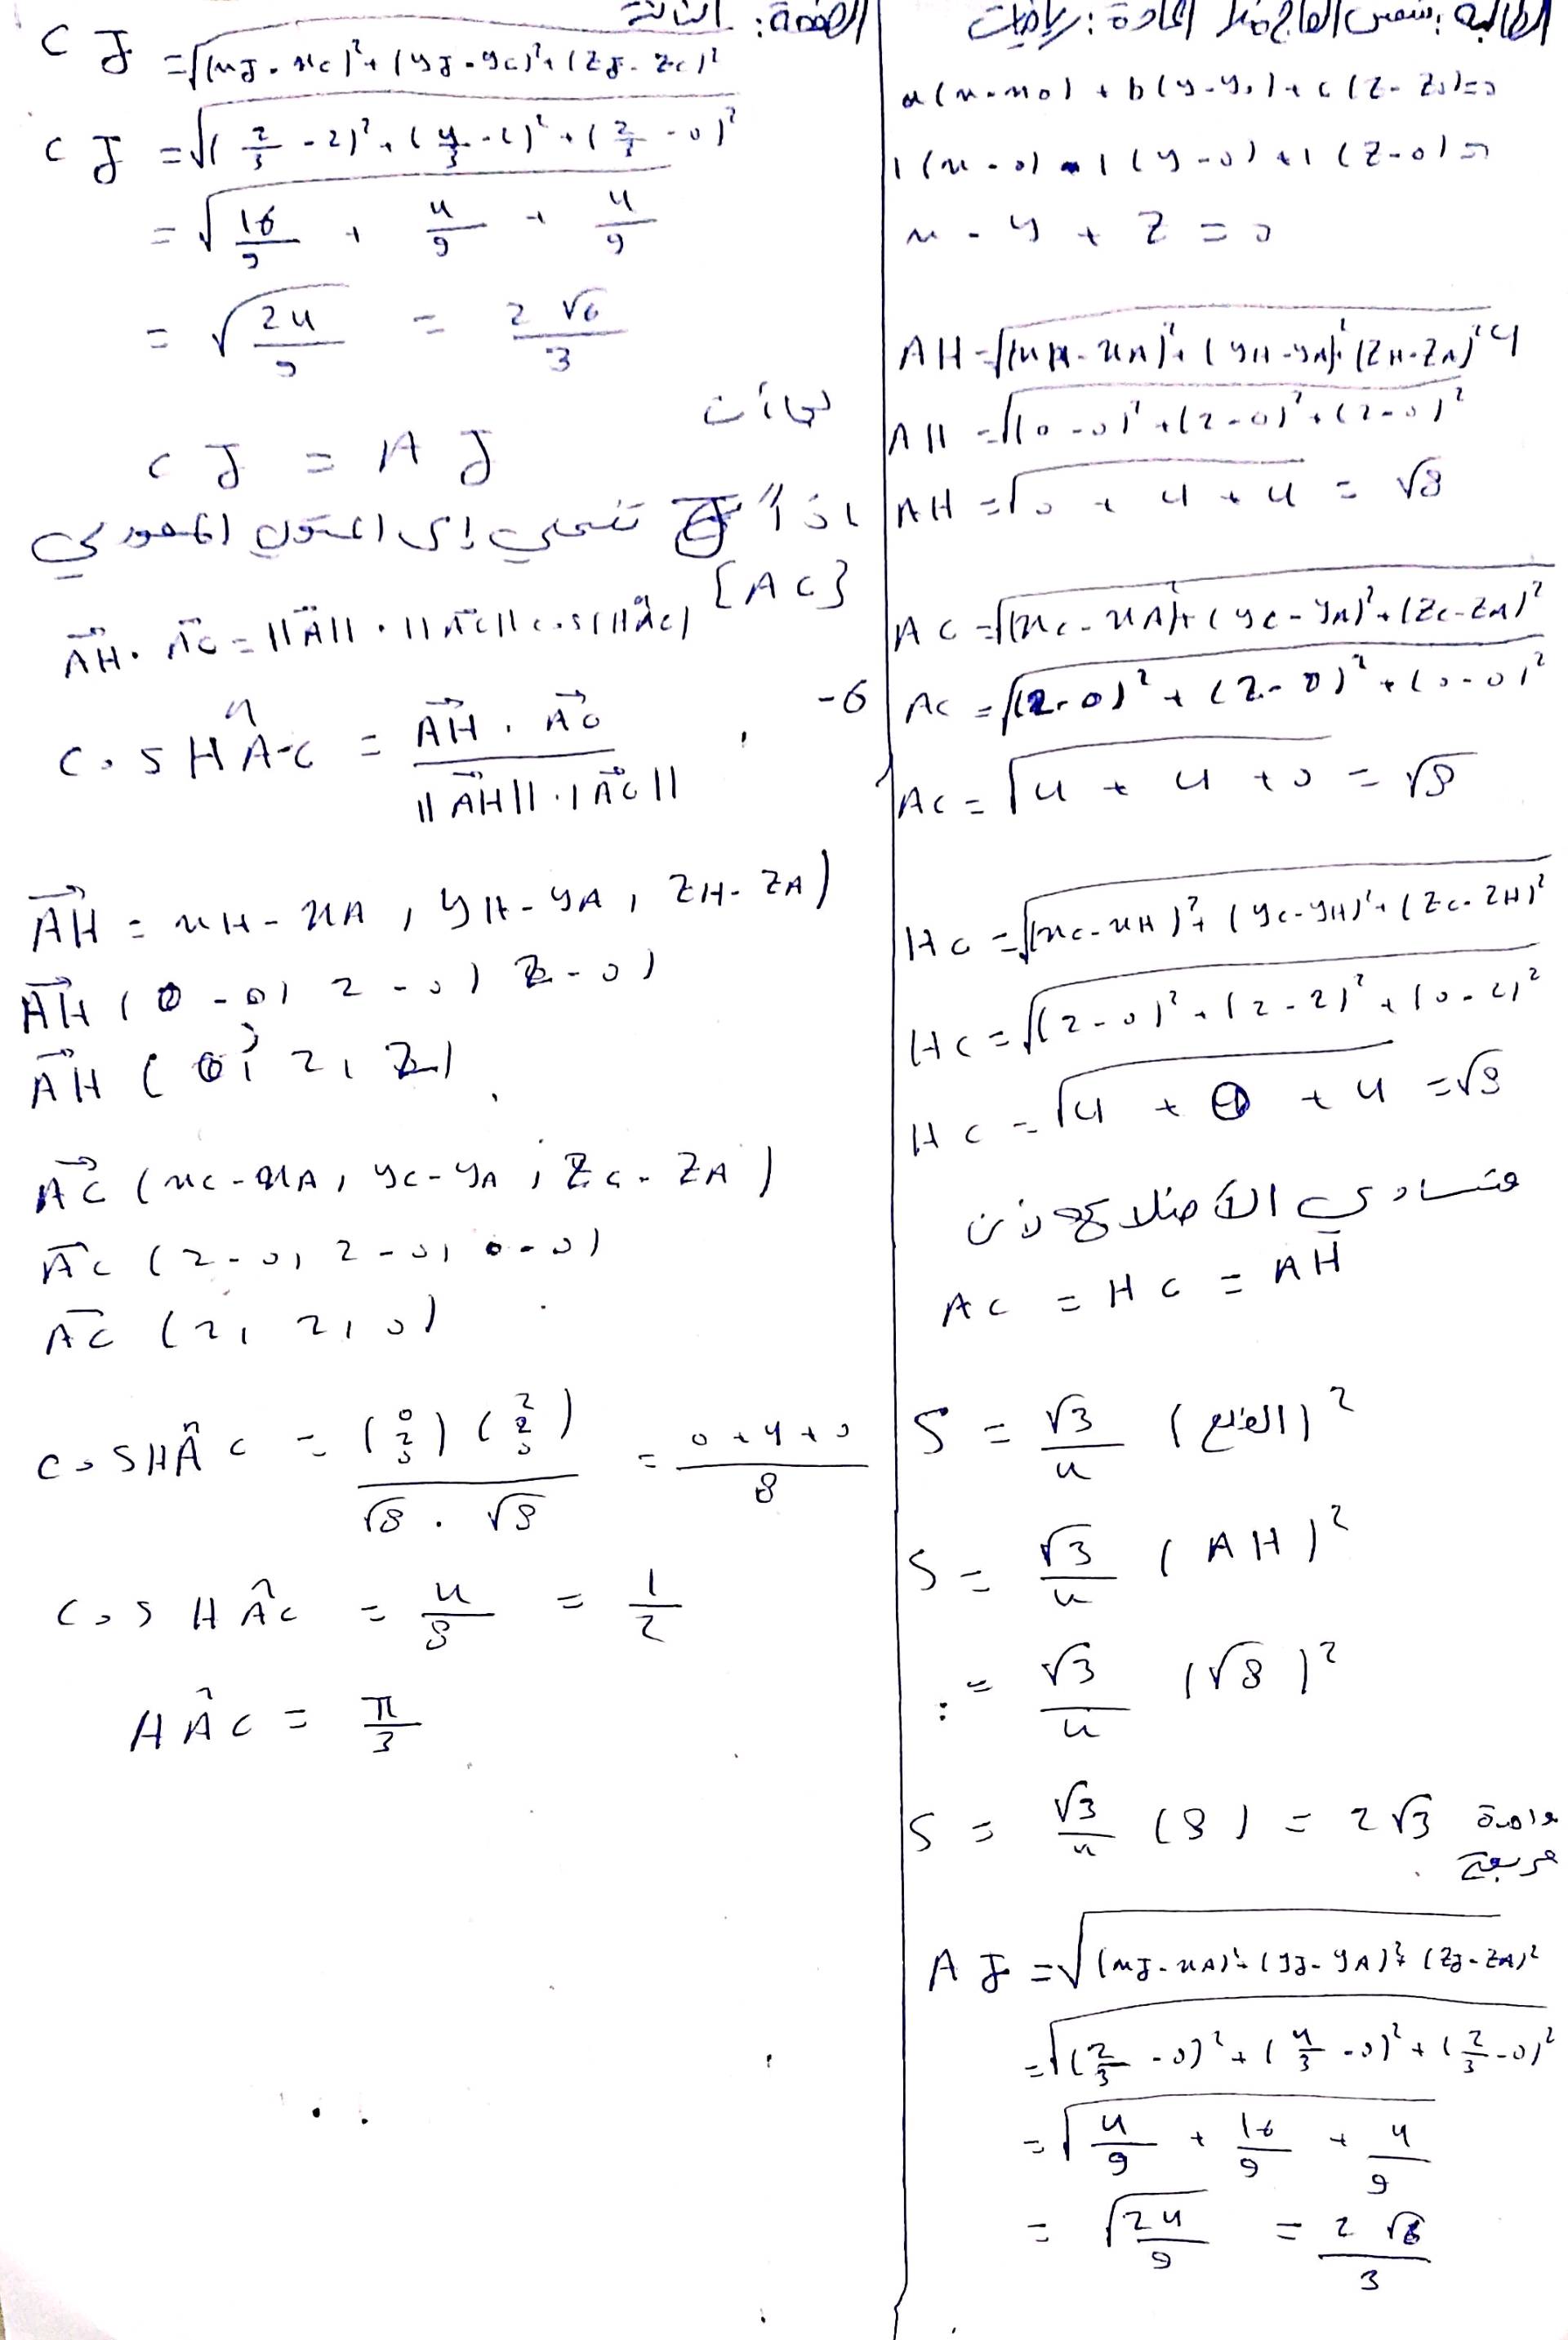 الطالبة: شمس الحاج المادة: رياضيات
a(x-x0) + b(y-y0) + c(z-z0)=0
1(x-0) - 1(y-0) + 1(z-0)=0
x - y + z = 0
4
AH = √(xH-xA)²+(yH-yA)²+(zH-zA)²
AH = √(0-0)²+(2-0)²+(2-0)²
AH = √0 + 4 + 4 = √8
AC = √(xC-xA)²+(yC-yA)²+(zC-zA)²
AC = √(2-0)²+(2-0)²+(0-0)²
AC = √4 + 4 + 0 = √8
HC = √(xC-xH)²+(yC-yH)²+(zC-zH)²
HC = √(2-0)²+(2-2)²+(0-2)²
HC = √4 + 0 + 4 = √8
متساوي الأضلاع لأن
AC = HC = AH
S = √3/4 (الضلع)²
S = √3/4 (AH)²
= √3/4 (√8)²
S = √3/4 (8) = 2√3 واحدة
مربعة
AJ = √(xJ-xA)²+(yJ-yA)²+(zJ-zA)²
= √(2/3 -0)²+(4/3 -0)²+(2/3 -0)²
= √4/9 + 16/9 + 4/9
= √24/9 = 2√6/3
الصفحة: الثالثة
CJ = √(xJ-xC)²+(yJ-yC)²+(zJ-zC)²
CJ = √(2/3 -2)²+(4/3 -2)²+(2/3 -0)²
= √16/9 + 4/9 + 4/9
= √24/9 = 2√6/3
لما أن
CJ = AJ
اذاً J تنتمي إلى المستوي المحوري
[AC]
AH⃗ . AC⃗ = ||AH⃗|| . ||AC⃗|| cos(HÂC)
-6
cos HÂC = AH⃗ . AC⃗ / ||AH⃗|| . ||AC⃗||
AH⃗ = xH-xA , yH-yA , zH-zA)
AH⃗ (0-0, 2-0, 2-0)
AH⃗ (0, 2, 2)
AC⃗ (xC-xA, yC-yA, zC-zA)
AC⃗ (2-0, 2-0, 0-0)
AC⃗ (2, 2, 0)
cos HÂC = (0 2 2)(2 2 0) / √8 . √8 = 0+4+0 / 8
cos HÂC = 4/8 = 1/2
HÂC = π/3